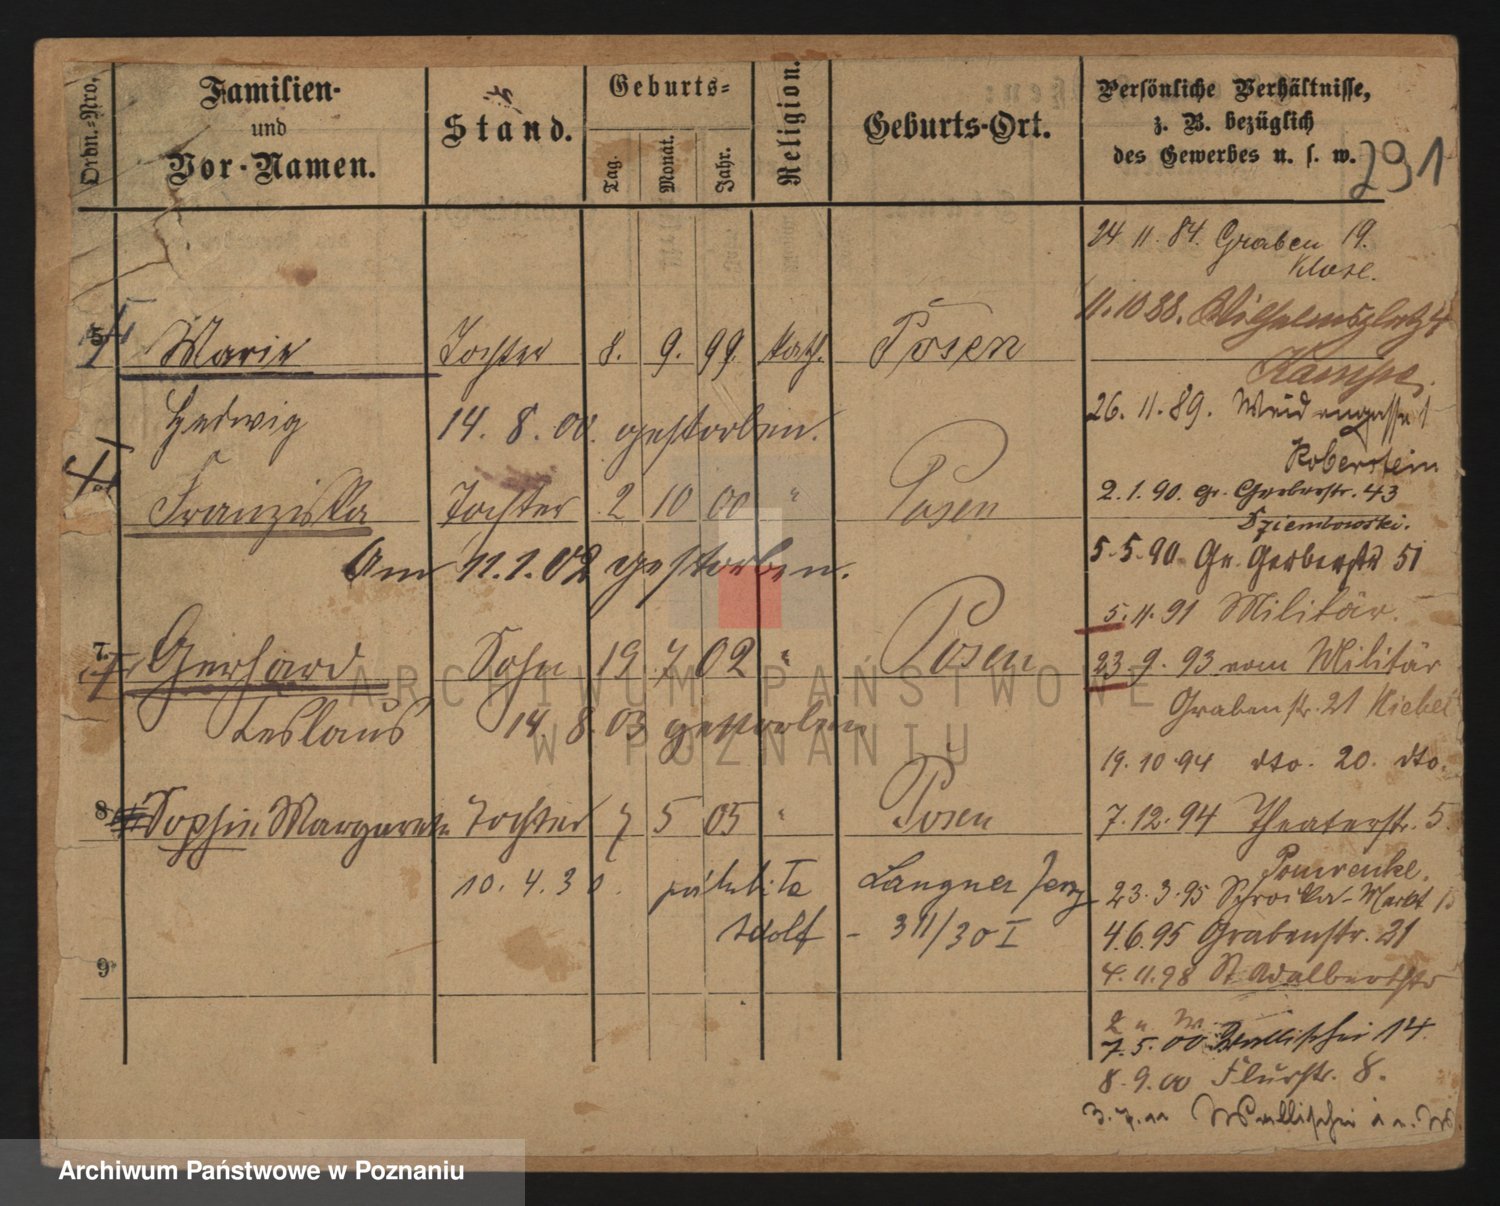 Ordn.-Nro.
Familien-
und
Vor-Namen.
Stand.
Geburts-
Tag.
Monat.
Jahr.
Religion.
Geburts-Ort.
Persönliche Verhältnisse,
z. B. bezüglich
des Gewerbes u. s. w.
291
24 11. 84. Graben 19.
Klose.
11. 10 88. Wilhelmsplatz 4
5 Marie Tochter 8. 9. 99 kath. Posen
Kampe.
Hedwig 14. 8. 00. gestorben.
26. 11. 89. Weidengasse 1
Koberstein
Franziska Tochter 2 10 00 " Posen
2. 1. 90. Gr. Gerberstr. 43
Dziembowski.
Am 11. 1. 02 gestorben.
5. 5. 90 Gr. Gerberstr 51
5. 11. 91 Militär.
7. Gerhard Sohn 19 7 02 " Posen
23 9. 93 vom Militär
Grabenstr. 21
Leslaus 14. 8. 03 gestorben
19. 10 94 dto. 20. dto.
8 Sophie Margarete Tochter 7 5 05 " Posen
7. 12. 94 Theaterstr. 5.
10. 4. 30. Langner Jerzy
23. 3. 95 Markt
Adolf - 311/30 I
4. 6. 95 Grabenstr. 21
9
4. 11. 98 St Adalbertstr
7. 5. 00 Wallischei 14.
8. 9. 00 Flurstr. 8.
Wallischei
ARCHIWUM PAŃSTWOWE
W POZNANIU
Archiwum Państwowe w Poznaniu